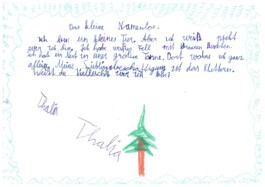 Das kleine Namenlos.
Ich bin ein kleines Tier. Aber ich weiß nicht
wer ich bin. Ich habe Fell mit braunen
ich hab ein Nest in einer großen Tanne. Dort wohne ich ganz
allein. Meine Lieblingsbeschäftigung ist das Klettern.
Vielleicht
Thalia
Thalia